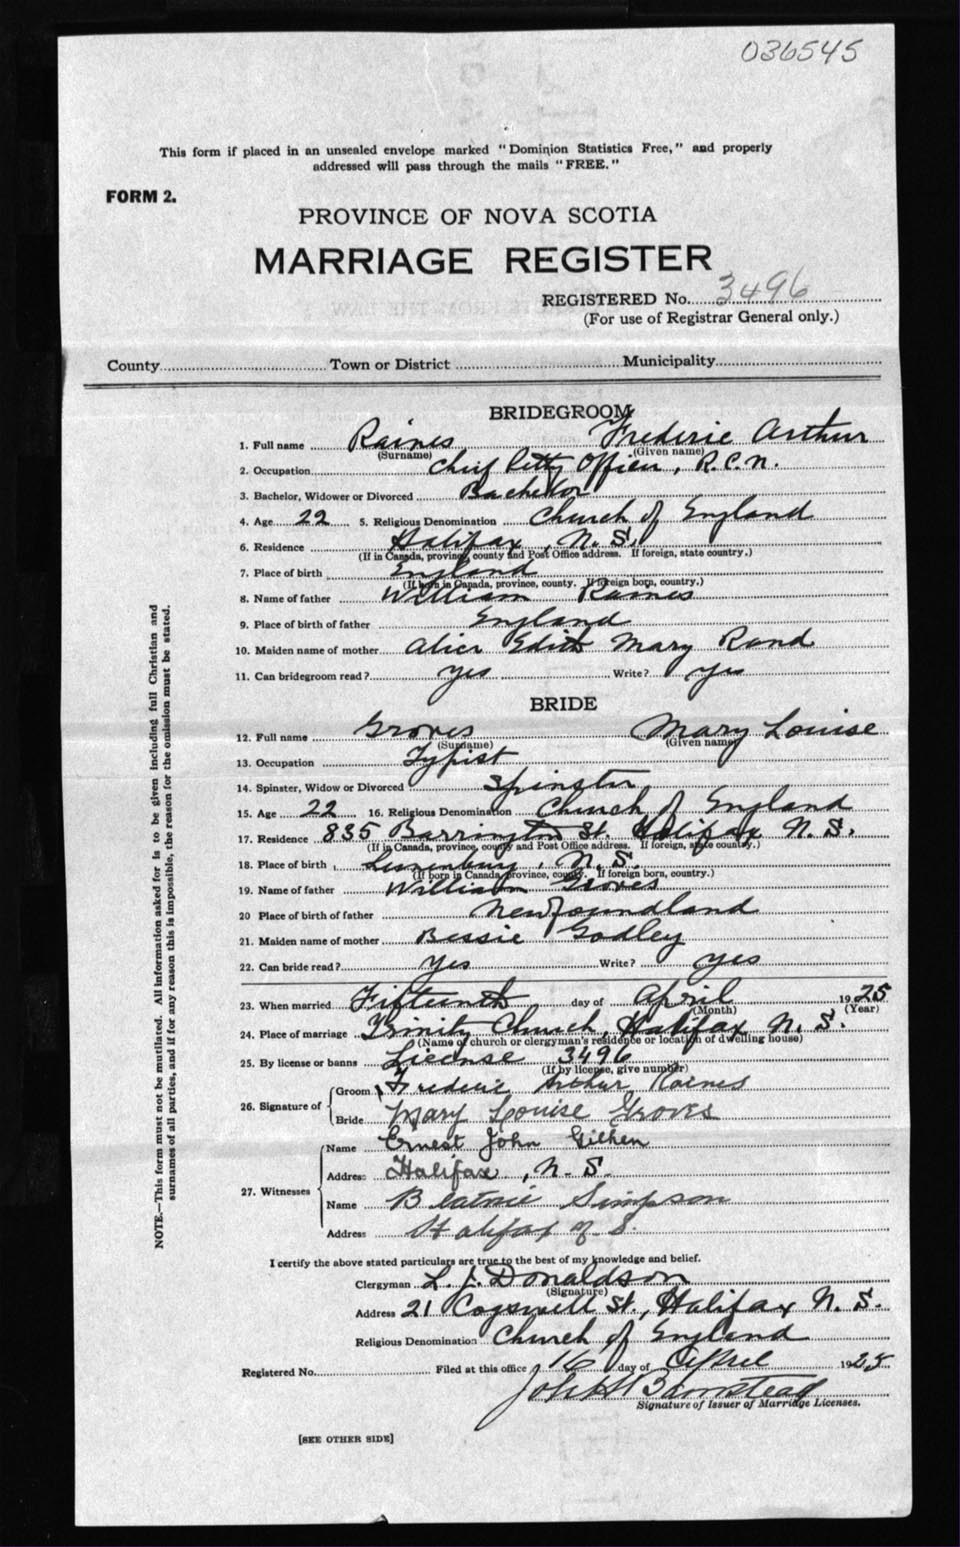 036545
This form if placed in an unsealed envelope marked "Dominion Statistics Free," and properly
addressed will pass through the mails "FREE."
FORM 2.
PROVINCE OF NOVA SCOTIA
MARRIAGE REGISTER
REGISTERED No. 3496
(For use of Registrar General only.)
County Town or District Municipality
BRIDEGROOM
1. Full name Raines Frederic Arthur
(Surname) (Given name)
2. Occupation Chief Petty Officer, R.C.N.
3. Bachelor, Widower or Divorced Bachelor
4. Age 22 5. Religious Denomination Church of England
6. Residence Halifax, N.S.
(If in Canada, province, county and Post Office address. If foreign, state country.)
7. Place of birth England
(If born in Canada, province, county. If foreign born, country.)
8. Name of father William Raines
9. Place of birth of father England
10. Maiden name of mother Alice Edith Mary Rand
11. Can bridegroom read? yes Write? yes
BRIDE
12. Full name Groves Mary Louise
(Surname) (Given name)
13. Occupation Typist
14. Spinster, Widow or Divorced Spinster
15. Age 22 16. Religious Denomination Church of England
17. Residence 835 Barrington St. Halifax N.S.
(If in Canada, province, county and Post Office address. If foreign, state country.)
18. Place of birth Lunenburg, N.S.
(If born in Canada, province, county. If foreign born, country.)
19. Name of father William Groves
20 Place of birth of father Newfoundland
21. Maiden name of mother Bessie Godley
22. Can bride read? yes Write? yes
23. When married Fifteenth day of April 1925
(Month) (Year)
24. Place of marriage Trinity Church, Halifax N.S.
(Name of church or clergyman's residence or location of dwelling house)
25. By license or banns License 3496
(If by license, give number)
26. Signature of Groom Frederic Arthur Raines
Bride Mary Louise Groves
27. Witnesses Name Ernest John Gilhen
Address Halifax, N.S.
Name Beatrice Simpson
Address Halifax N.S.
I certify the above stated particulars are true to the best of my knowledge and belief.
Clergyman L. J. Donaldson
(Signature)
Address 21 Cogswell St., Halifax N.S.
Religious Denomination Church of England
Registered No. Filed at this office 16 day of April 1925
John H Barnstead
Signature of Issuer of Marriage Licenses.
[SEE OTHER SIDE]
NOTE.—This form must not be mutilated. All information asked for is to be given including full Christian and
surnames of all parties, and if for any reason this is impossible, the reason for the omission must be stated.